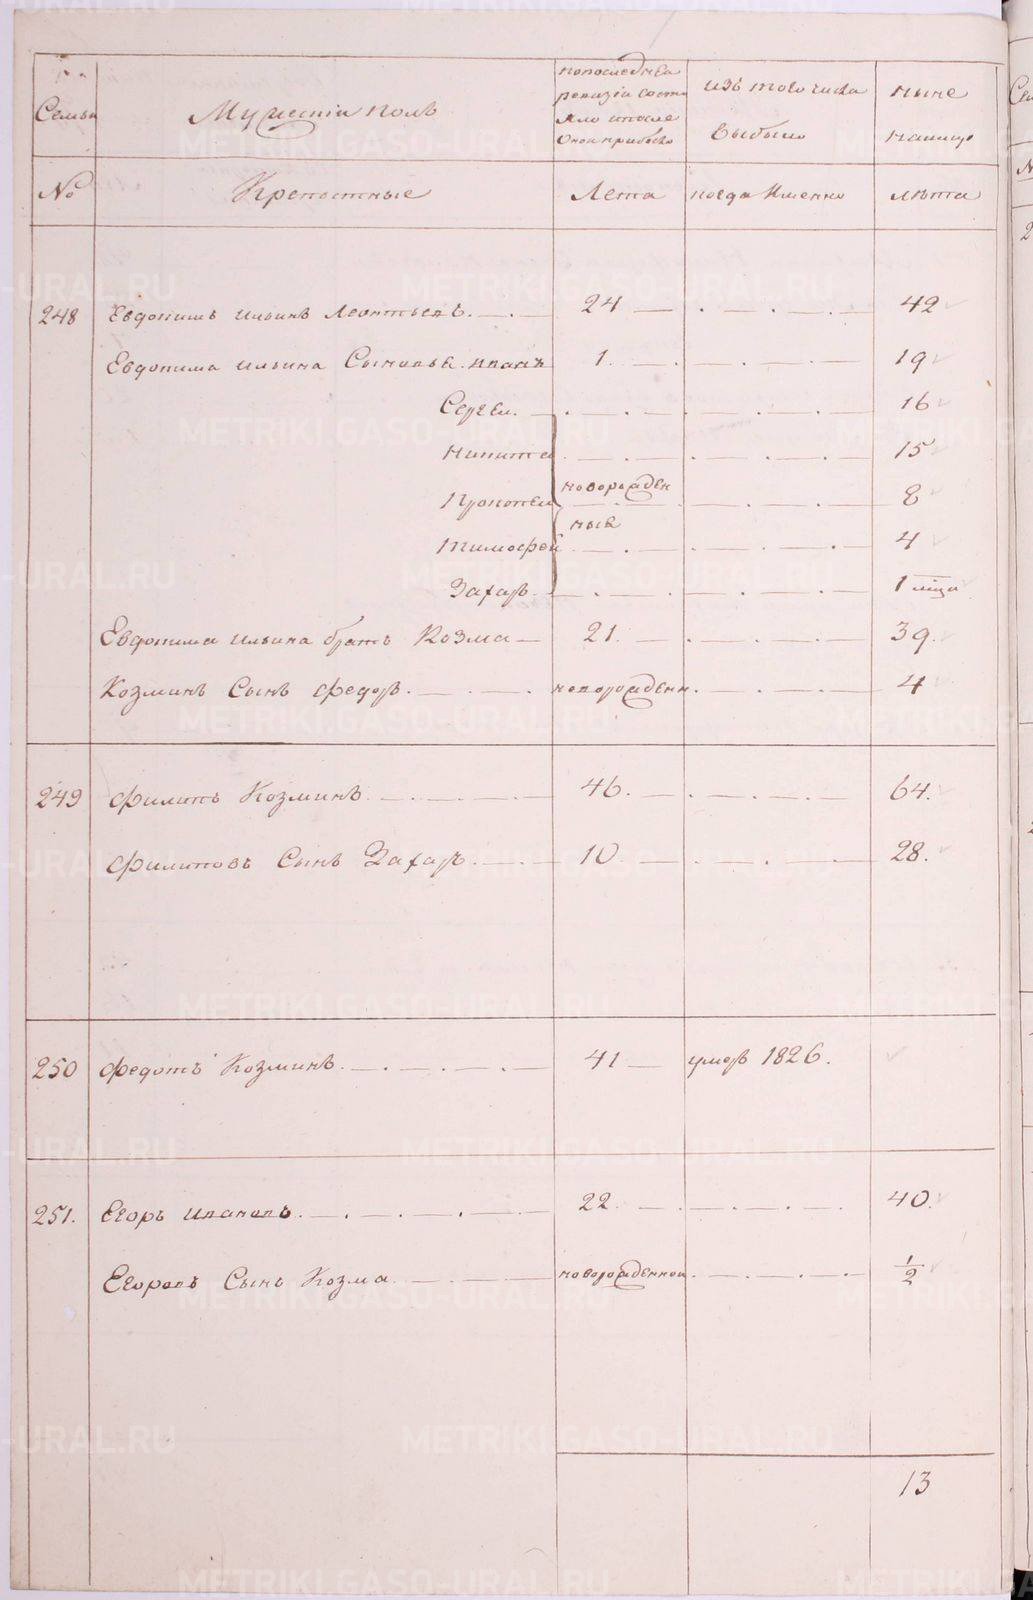 Семьи
Мужескій полъ
попоследнеа
ревизіи состо
яло ипосле
оной прибыло
изъ того числа
выбыло
ныне
налицо
№
Крепостные
Лета
когда Именно
лѣта
248 Евдокимъ ильинъ Леонтьевъ 24 42
Евдокима ильина Сыновья иванъ 1. 19
Сергеи 16
Никита 15
новорожден
Прокопеи 8
ные
Тимофеи 4
Захаръ 1 мѣца
Евдокима ильина братъ Козма 21. 39.
Козминъ Сынъ Федоръ новорожденн. 4
249 Филипъ Козминъ 46. 64.
Филиповъ Сынъ Захаръ 10 28.
250 Федотъ Козминъ 41 умеръ 1826.
251. Егоръ ивановъ 22. 40.
Егоровъ Сынъ Козма новорожденнои 1/2
13
METRIKI.GASO-URAL.RU